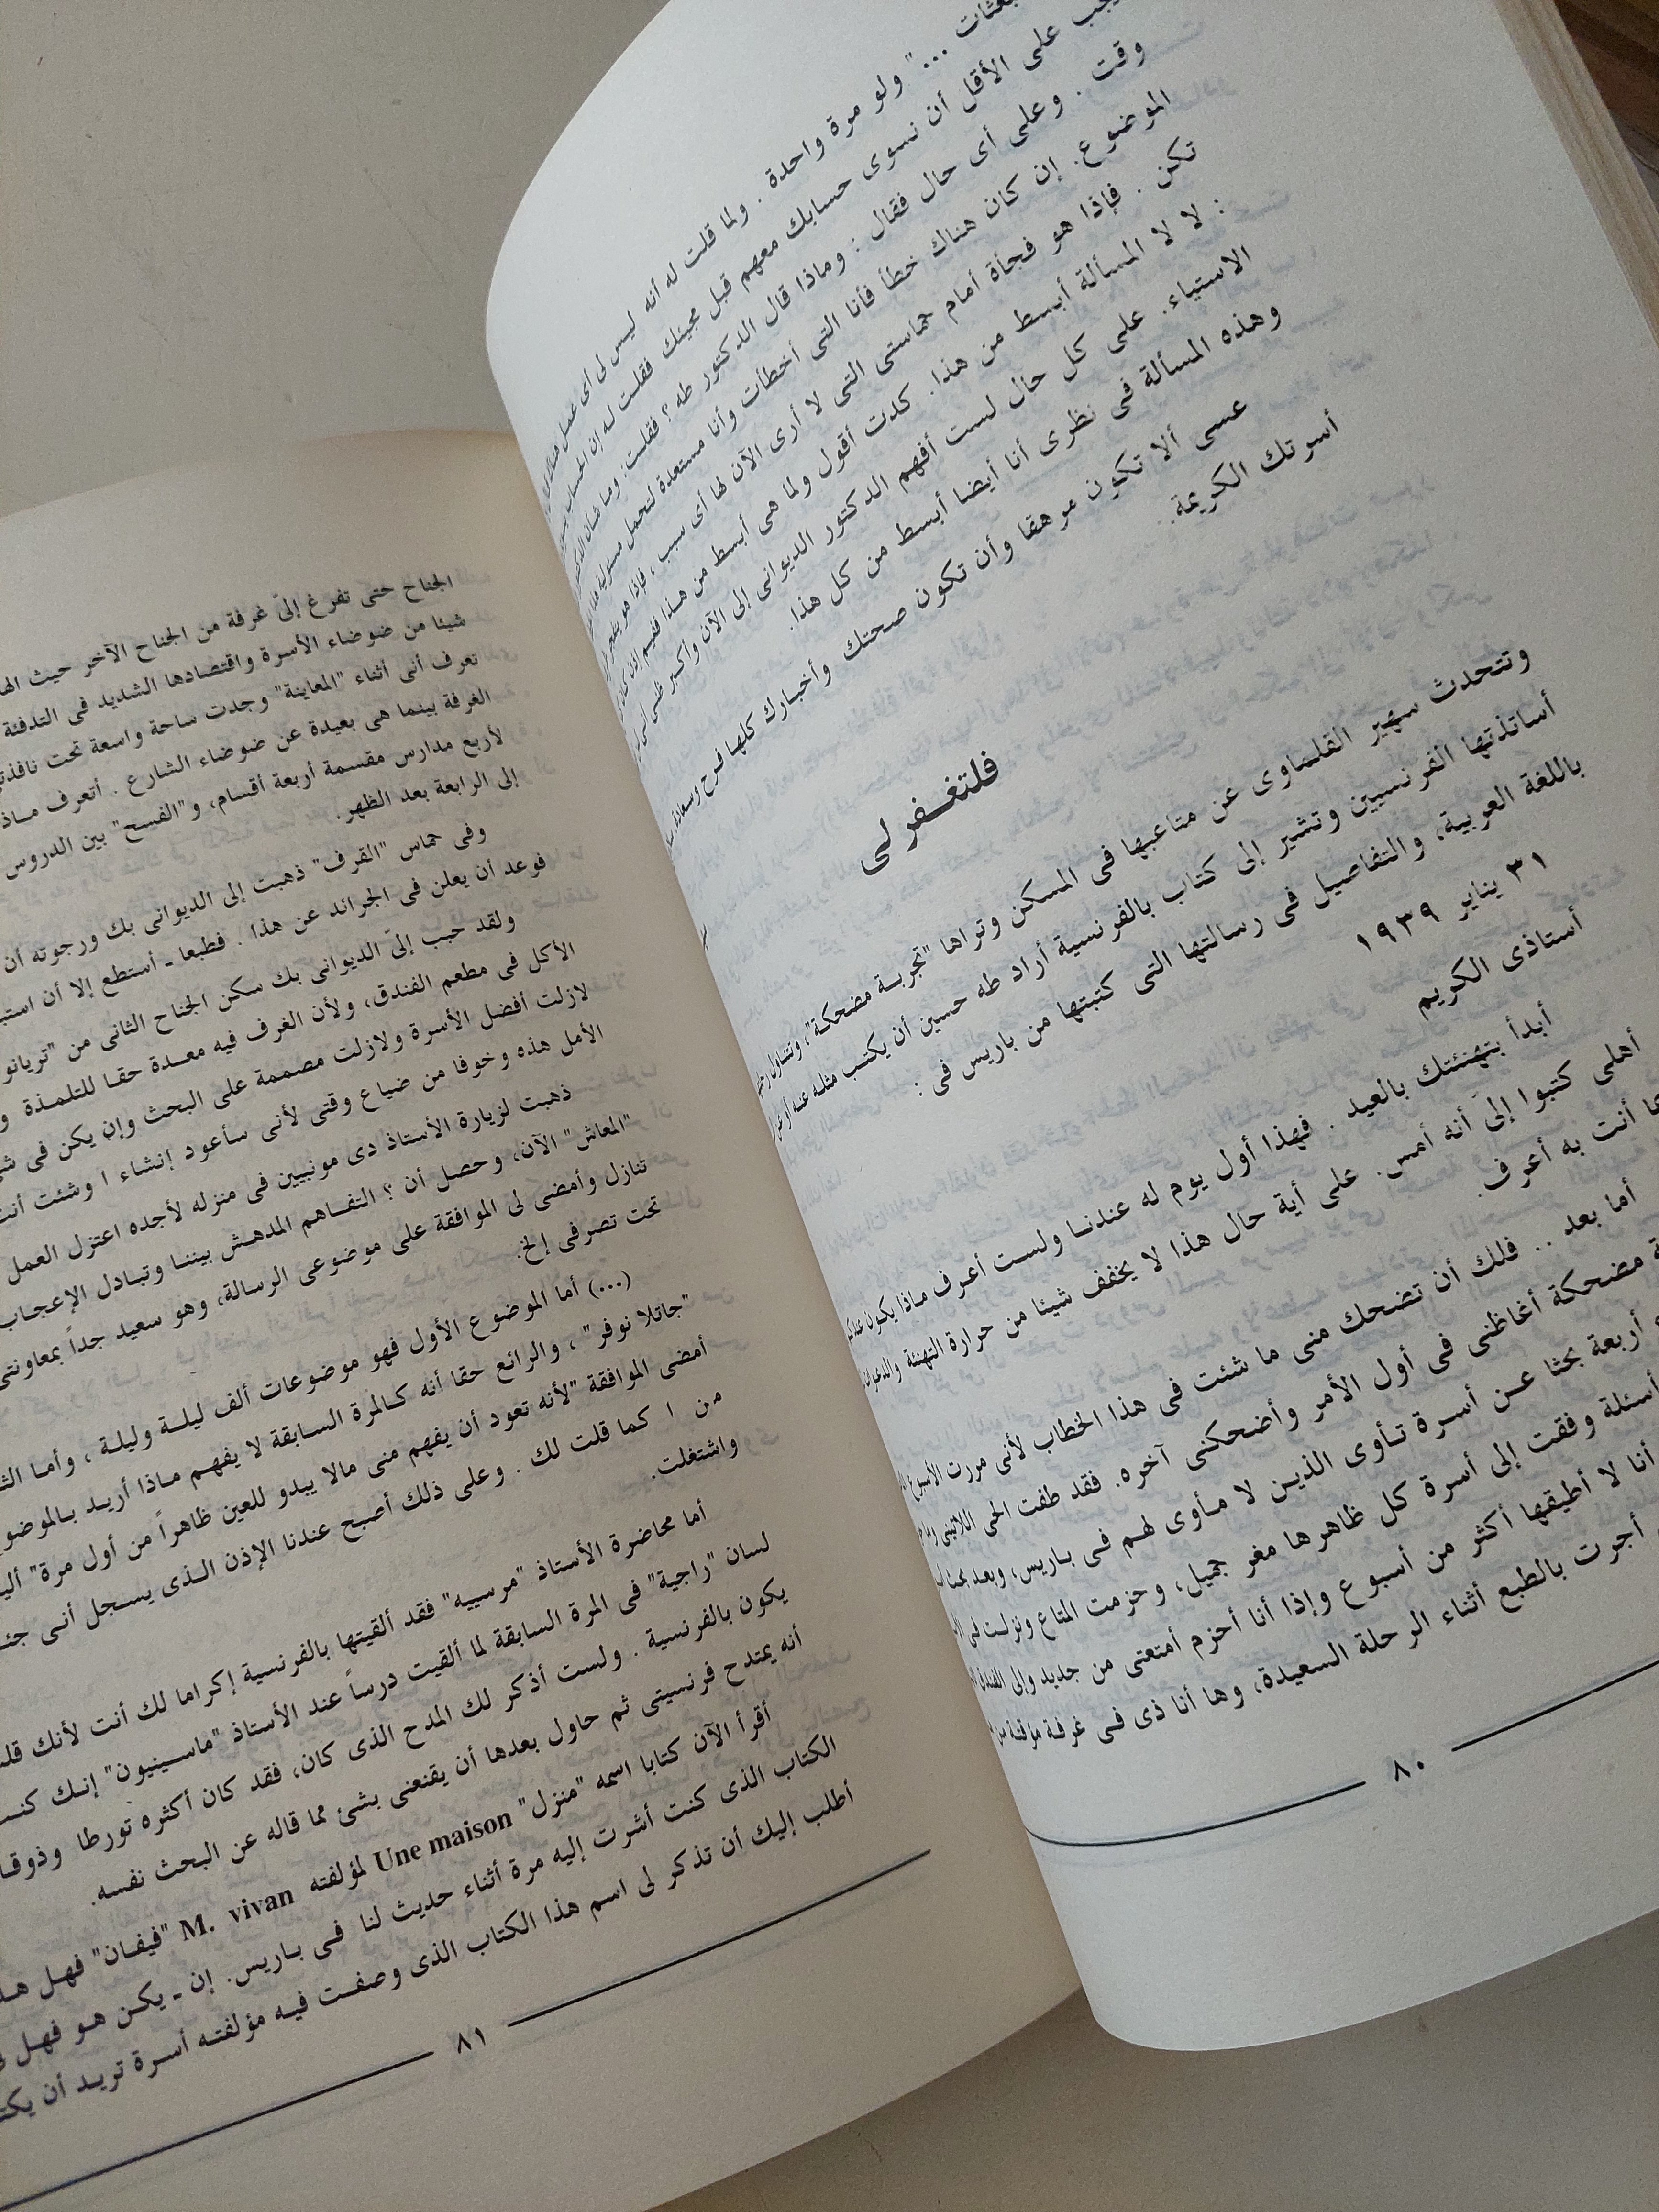 بعثات ..." ولو مرة واحدة . ولما قلت له أنه ليس لى أى عمل هنالك
يجب على الأقل أن نسوى حسابك معهم قبل مجيئك فقلت له إن الحساب
وقت . وعلى أى حال فقال : وماذا قال الدكتور طه ؟ فقلت: وما شأن الدكتور
الموضوع. إن كان هناك خطأ فأنا التى أخطأت وأنا مستعدة لتحمل مسئولية
تكن . فإذا هو فجأة أمام حماستى التى لا أرى الآن لها أى سبب ، فإذا هو
: لا لا المسألة أبسط من هذا. كدت أقول ولما هى أبسط من هذا ففيم إذن كان
الاستياء. على كل حال لست أفهم الدكتور الديوانى إلى الآن وأكبر ظنى
وهذه المسألة فى نظرى أنا أيضا أبسط من كل هذا.
عسى ألا تكون مرهقا وأن تكون صحتك وأخبارك كلها فرح وسعادة
أسرتك الكريمة.
فلتغفر لى
وتتحدث سهير القلماوى عن متاعبها فى المسكن وتراها "تجربة مضحكة"، وتتناول
أساتذتها الفرنسيين وتشير إلى كتاب بالفرنسية أراد طه حسين أن يكتب مثله عنه أو عن
باللغة العربية، والتفاصيل فى رسالتها التى كتبتها من باريس فى :
٣١ يناير ١٩٣٩
أستاذى الكريم
أبدأ بتهنئتك بالعيد . فهذا أول يوم له عندنا ولست أعرف ماذا يكون عندكم
أهلى كتبوا إلىّ أنه أمس. على أية حال هذا لا يخفف شيئا من حرارة التهنئة والدعوات
أنت به أعرف.
أما بعد .. فلك أن تضحك منى ما شئت فى هذا الخطاب لأنى مررت الأسبوع
مضحكة أغاظنى فى أول الأمر وأضحكنى آخره. فقد طفت الحى اللاتينى
أربعة بحثا عن أسرة تأوى الذين لا مأوى لهم فى باريس، وبعد بحث
أسئلة وفقت إلى أسرة كل ظاهرها مغر جميل، وحزمت المتاع ونزلت فى
أنا لا أطيقها أكثر من أسبوع وإذا أنا أحزم أمتعتى من جديد وإلى الفندق
أجرت بالطبع أثناء الرحلة السعيدة، وها أنا ذى فى غرفة مؤقتة من
٨٠
الجناح حتى تفرغ إلىّ غرفة من الجناح الآخر حيث
شيئا من ضوضاء الأسرة واقتصادها الشديد فى التدفئة
تعرف أنى أثناء "المعاينة" وجدت ساحة واسعة تحت نافذتى
الغرفة بينما هى بعيدة عن ضوضاء الشارع . أتعرف ماذا
لأربع مدارس مقسمة أربعة أقسام، و"الفسح" بين الدروس
إلى الرابعة بعد الظهر.
وفى حماس "القرف" ذهبت إلى الديوانى بك ورجوته أن
فوعد أن يعلن فى الجرائد عن هذا . فطبعا ـ أستطع إلا أن
ولقد حبب إلىّ الديوانى بك سكن الجناح الثانى من "تريانو
الأكل فى مطعم الفندق، ولأن الغرف فيه معدة حقا للتلمذة
لازلت أفضل الأسرة ولازلت مصممة على البحث وإن يكن فى
الأمل هذه وخوفا من ضياع وقتى لأنى سأعود إنشاء ا وشئت أنت
ذهبت لزيارة الأستاذ دى مونبيين فى منزله لأجده اعتزل العمل
"المعاش" الآن، وحصل أن ؟ التفاهم المدهش بيننا وتبادل الإعجاب
تنازل وأمضى لى الموافقة على موضوعى الرسالة، وهو سعيد جداً بمعاونتى
تحت تصرفى إلخ.
(...) أما الموضوع الأول فهو موضوعات ألف ليلة وليلة ، وأما
"جاتلا نوفر" ، والرائع حقا أنه كالمرة السابقة لا يفهم ماذا أريد بالموضوع
أمضى الموافقة "لأنه تعود أن يفهم منى مالا يبدو للعين ظاهراً من أول مرة"
من ا كما قلت لك . وعلى ذلك أصبح عندنا الإذن الذى يسجل أنى
واشتغلت.
أما محاضرة الأستاذ "مرسييه" فقد ألقيتها بالفرنسية إكراما لك أنت لأنك
لسان "راجية" فى المرة السابقة لما ألقيت درساً عند الأستاذ "ماسينيون" إنك
يكون بالفرنسية . ولست أذكر لك المدح الذى كان، فقد كان أكثره تورطا
أنه يمتدح فرنسيتى ثم حاول بعدها أن يقنعنى بشئ مما قاله عن البحث نفسه.
أقرأ الآن كتابا اسمه "منزل" Une maison لمؤلفته M. vivan "فيفان" فهل
الكتاب الذى كنت أشرت إليه مرة أثناء حديث لنا فى باريس. إن ـ يكن هو فهل
أطلب إليك أن تذكر لى اسم هذا الكتاب الذى وصفت فيه مؤلفته أسرة تريد أن
٨١